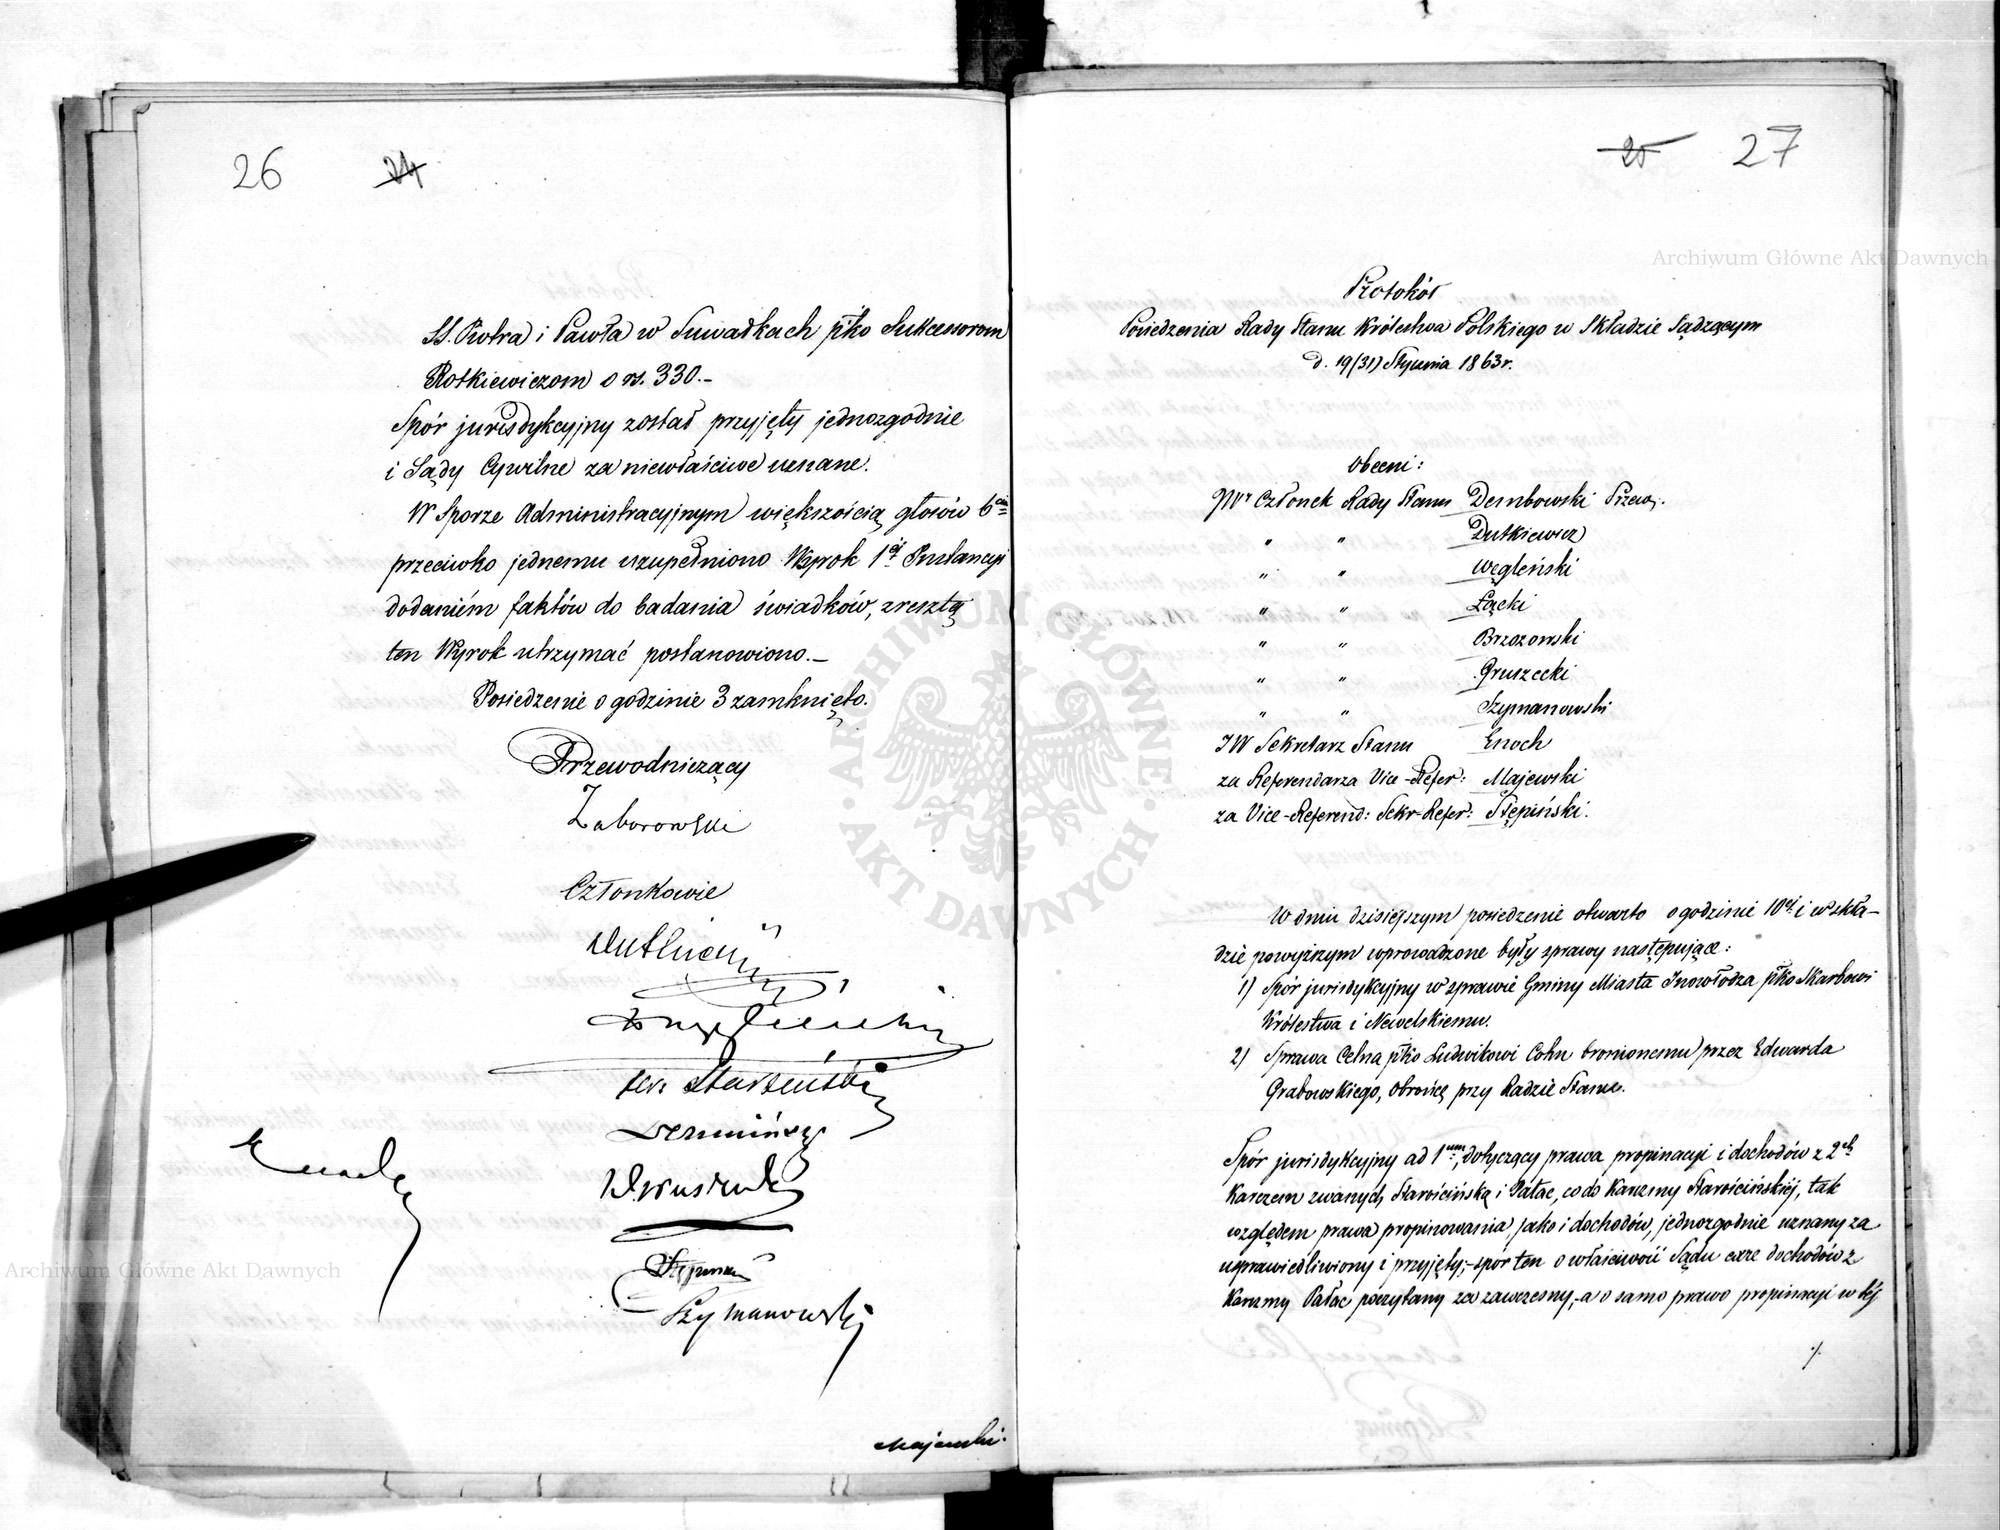 26 24
SS. Piotra i Pawła w Suwałkach pko Sukcessorom
Rotkiewiczom o rs. 330.-
Spór jurisdykcyjny został przyjęty jednozgodnie
i Sądy Cywilne za niewłaściwe uznane.
W Sporze Administracyjnym większością głosów 6ciu
przeciwko jednemu uzupełniono Wyrok 1ej Instancyi
dodaniem faktów do badania świadków, zresztą
ten Wyrok utrzymać postanowiono.-
Posiedzenie o godzinie 3 zamknięto.
Przewodniczący
Zaborowski
Członkowie
Dutkiewicz
Węgleński
Starzeński
Gruszecki
Szymanowski
Enoch
Majewski.
25 27
Protokół
Posiedzenia Rady Stanu Królestwa Polskiego w Składzie Sądzącym
d. 19 (31) Stycznia 1863 r.
Obecni:
JWr Członek Rady Stanu Dembowski Przew.
" " Dutkiewicz
" " Węgleński
" " Łącki
" " Brzozowski
" " Gruszecki
" " Szymanowski
JW Sekretarz Stanu Enoch
za Referendarza Vice-Refer: Majewski
za Vice-Referend: Sekr-Refer: Stępiński.
W dniu dzisiejszym posiedzenie otwarto o godzinie 10ej i w skła-
dzie powyższym wprowadzone były sprawy następujące:
1) Spór jurisdykcyjny w sprawie Gminy Miasta Inowłodza pko Skarbowi
Królestwa i Newelskiemu.
2) Sprawa Celna pko Ludwikowi Cohn bronionemu przez Edwarda
Grabowskiego, Obrońcę przy Radzie Stanu.
Spór jurisdykcyjny ad 1mum, dotyczący prawa propinacyi i dochodów z 2ch
Karczem zwanych Starościńską i Pałac, co do Karczmy Starościńskiéj, tak
względem prawa propinowania, jako i dochodów, jednozgodnie uznany za
usprawiedliwiony i przyjęty;- spór ten o właściwość Sądu co do dochodów z
Karczmy Pałac poczytany za zawczesny,- a o samo prawo propinacyi w téj
./.
Archiwum Główne Akt Dawnych
Archiwum Główne Akt Dawnych
ARCHIWUM GŁÓWNE
AKT DAWNYCH